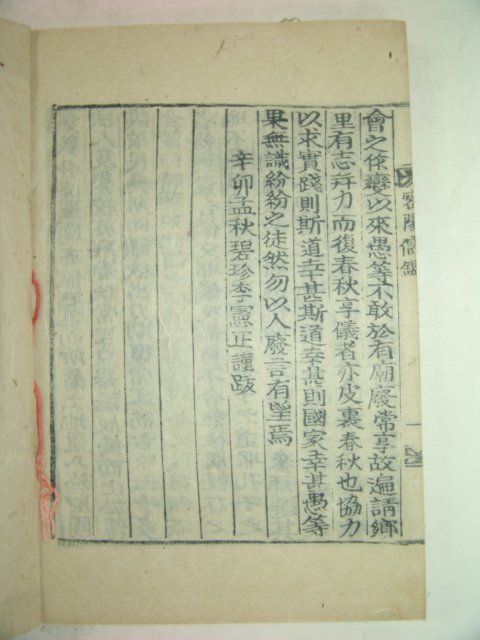 密陽儒
會之作變以來愚等不敢於有廟廢常享故遍請鄉
里有志幷力而復春秋享儀者亦皮裏春秋也協力
以求實踐則斯道幸甚斯道幸甚則國家幸甚愚等
果無識紛紛之徒然勿以人廢言有望焉
辛卯孟秋碧珍李憲正謹跋